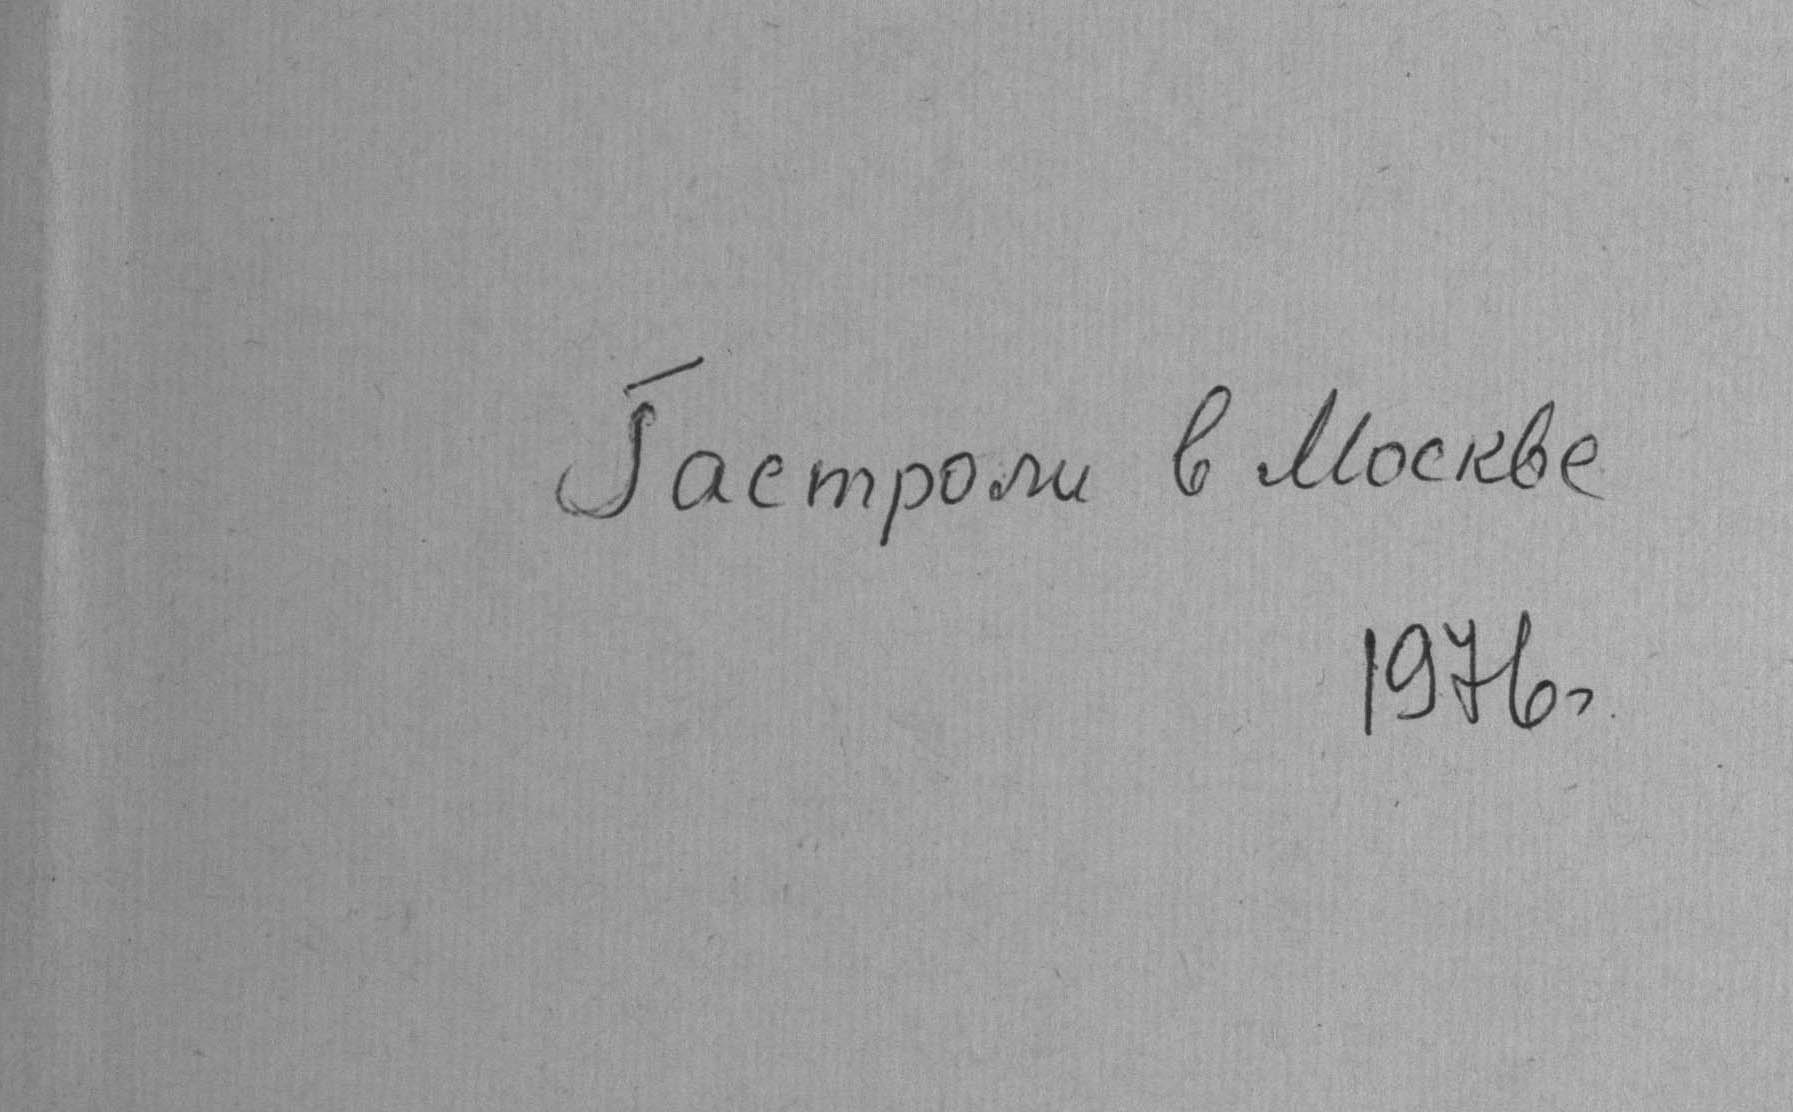 Гастроли в Москве
1976г.